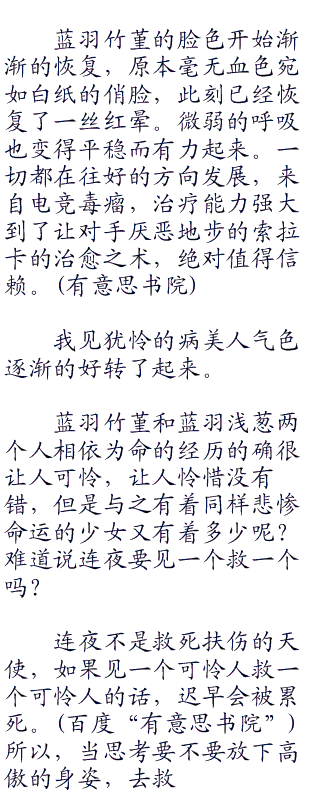 蓝羽竹堇的脸色开始渐
渐的恢复，原本毫无血色宛
如白纸的俏脸，此刻已经恢
复了一丝红晕。微弱的呼吸
也变得平稳而有力起来。一
切都在往好的方向发展，来
自电竞毒瘤，治疗能力强大
到了让对手厌恶地步的索拉
卡的治愈之术，绝对值得信
赖。(有意思书院)
我见犹怜的病美人气色
逐渐的好转了起来。
蓝羽竹堇和蓝羽浅葱两
个人相依为命的经历的确很
让人可怜，让人怜惜没有
错，但是与之有着同样悲惨
命运的少女又有着多少呢？
难道说连夜要见一个救一个
吗？
连夜不是救死扶伤的天
使，如果见一个可怜人救一
个可怜人的话，迟早会被累
死。(百度“有意思书院”)
所以，当思考要不要放下高
傲的身姿，去救